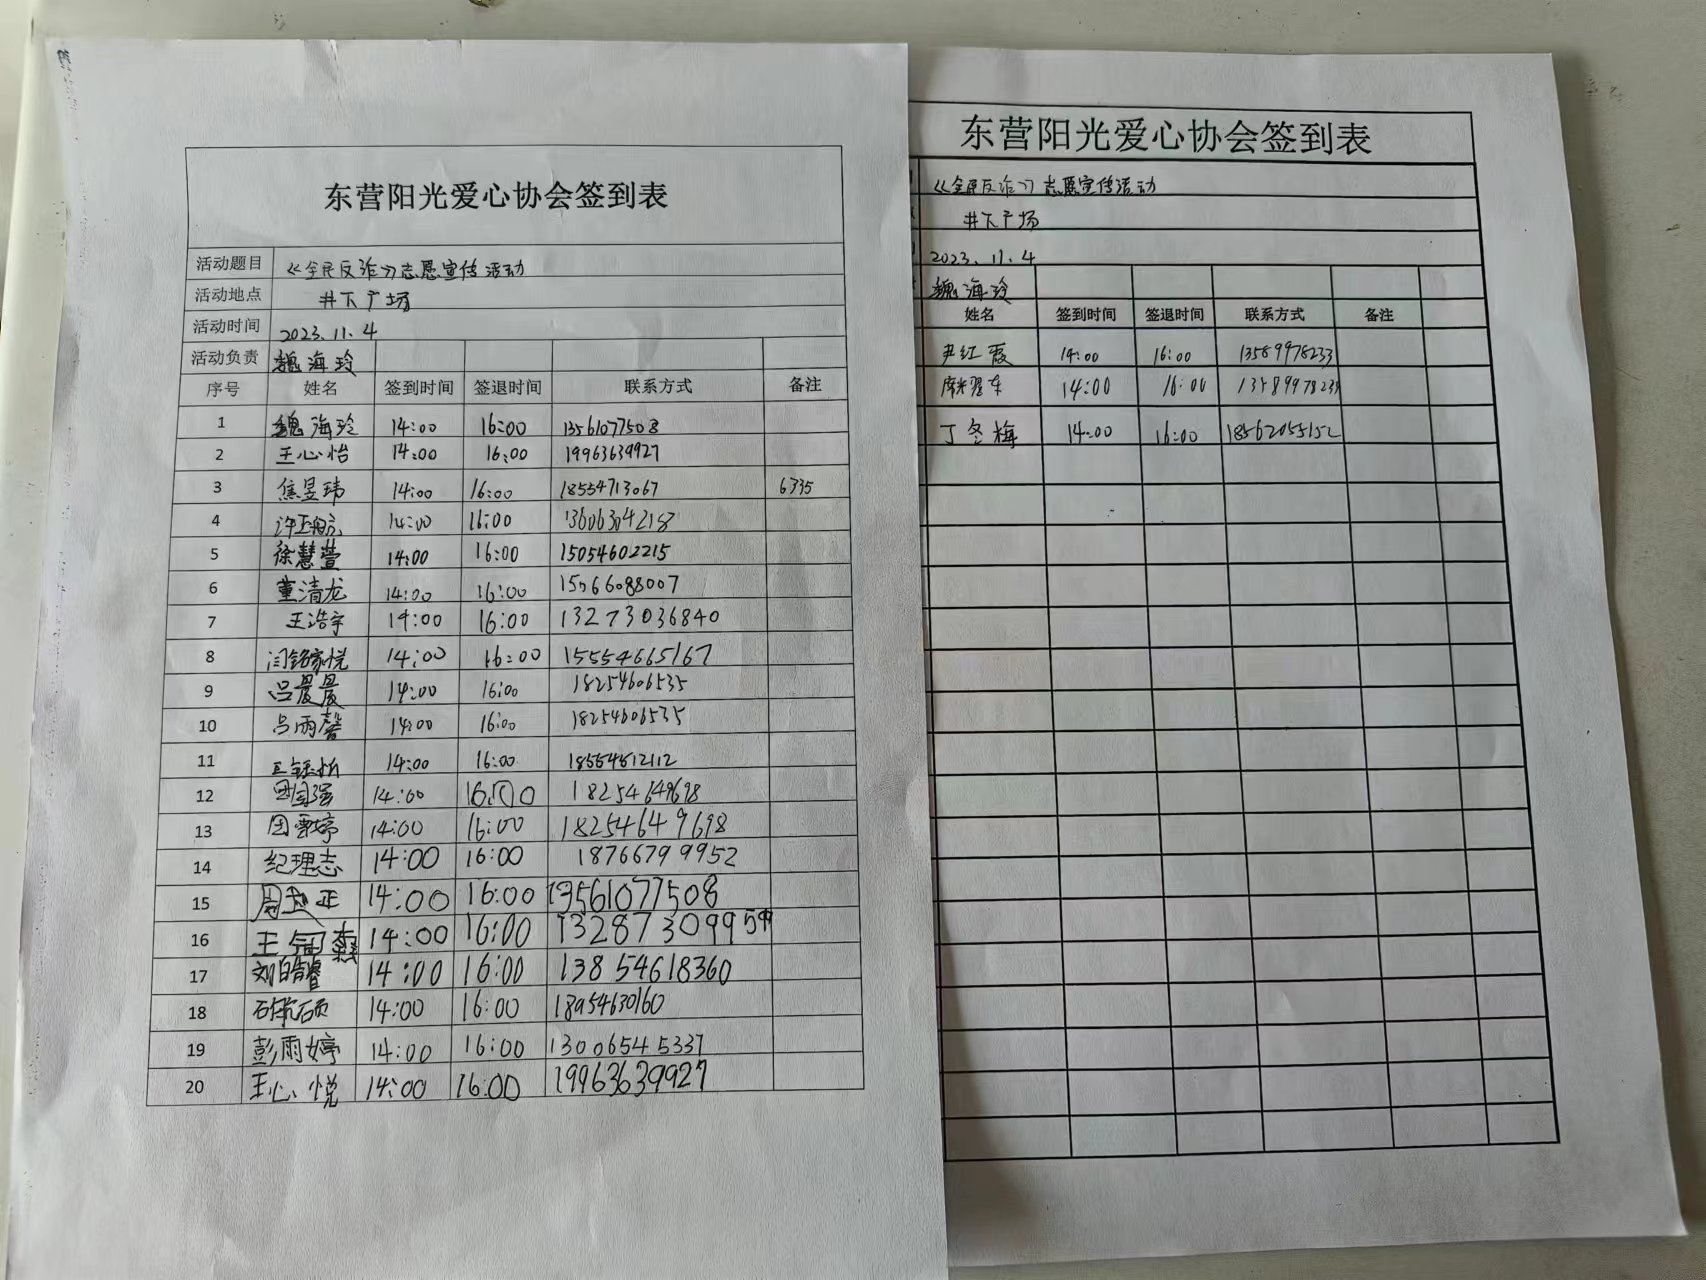 东营阳光爱心协会签到表
活动题目 《全民反诈》志愿宣传活动
活动地点 井下广场
活动时间 2023.11.4
活动负责 魏海玲
序号 姓名 签到时间 签退时间 联系方式 备注
1 魏海玲 14:00 16:00 13561077508
2 王心怡 14:00 16:00 19963639927
3 焦昱玮 14:00 16:00 18554713067 6335
4 14:00 16:00 13606304218
5 徐慧萱 14:00 16:00 15054602215
6 董清龙 14:00 16:00 15066088007
7 王浩宇 14:00 16:00 13273036840
8 闫铭家悦 14:00 16:00 15554665167
9 吕晨晨 14:00 16:00 18254606535
10 吕雨馨 14:00 16:00 18254606535
11 14:00 16:00 18554512112
12 14:00 16:00 18254649698
13 14:00 16:00 18254649698
14 纪理志 14:00 16:00 18766799952
15 14:00 16:00 13561077508
16 14:00 16:00
17 14:00 16:00 13854618360
18 14:00 16:00 18954630160
19 彭雨婷 14:00 16:00 13006545337
20 王心悦 14:00 16:00 19963639927
东营阳光爱心协会签到表
《全民反诈》志愿宣传活动
井下广场
2023.11.4
魏海玲
姓名 签到时间 签退时间 联系方式 备注
尹红霞 14:00 16:00 13589978233
14:00 16:00 13589978233
丁冬梅 14:00 16:00 18562055152